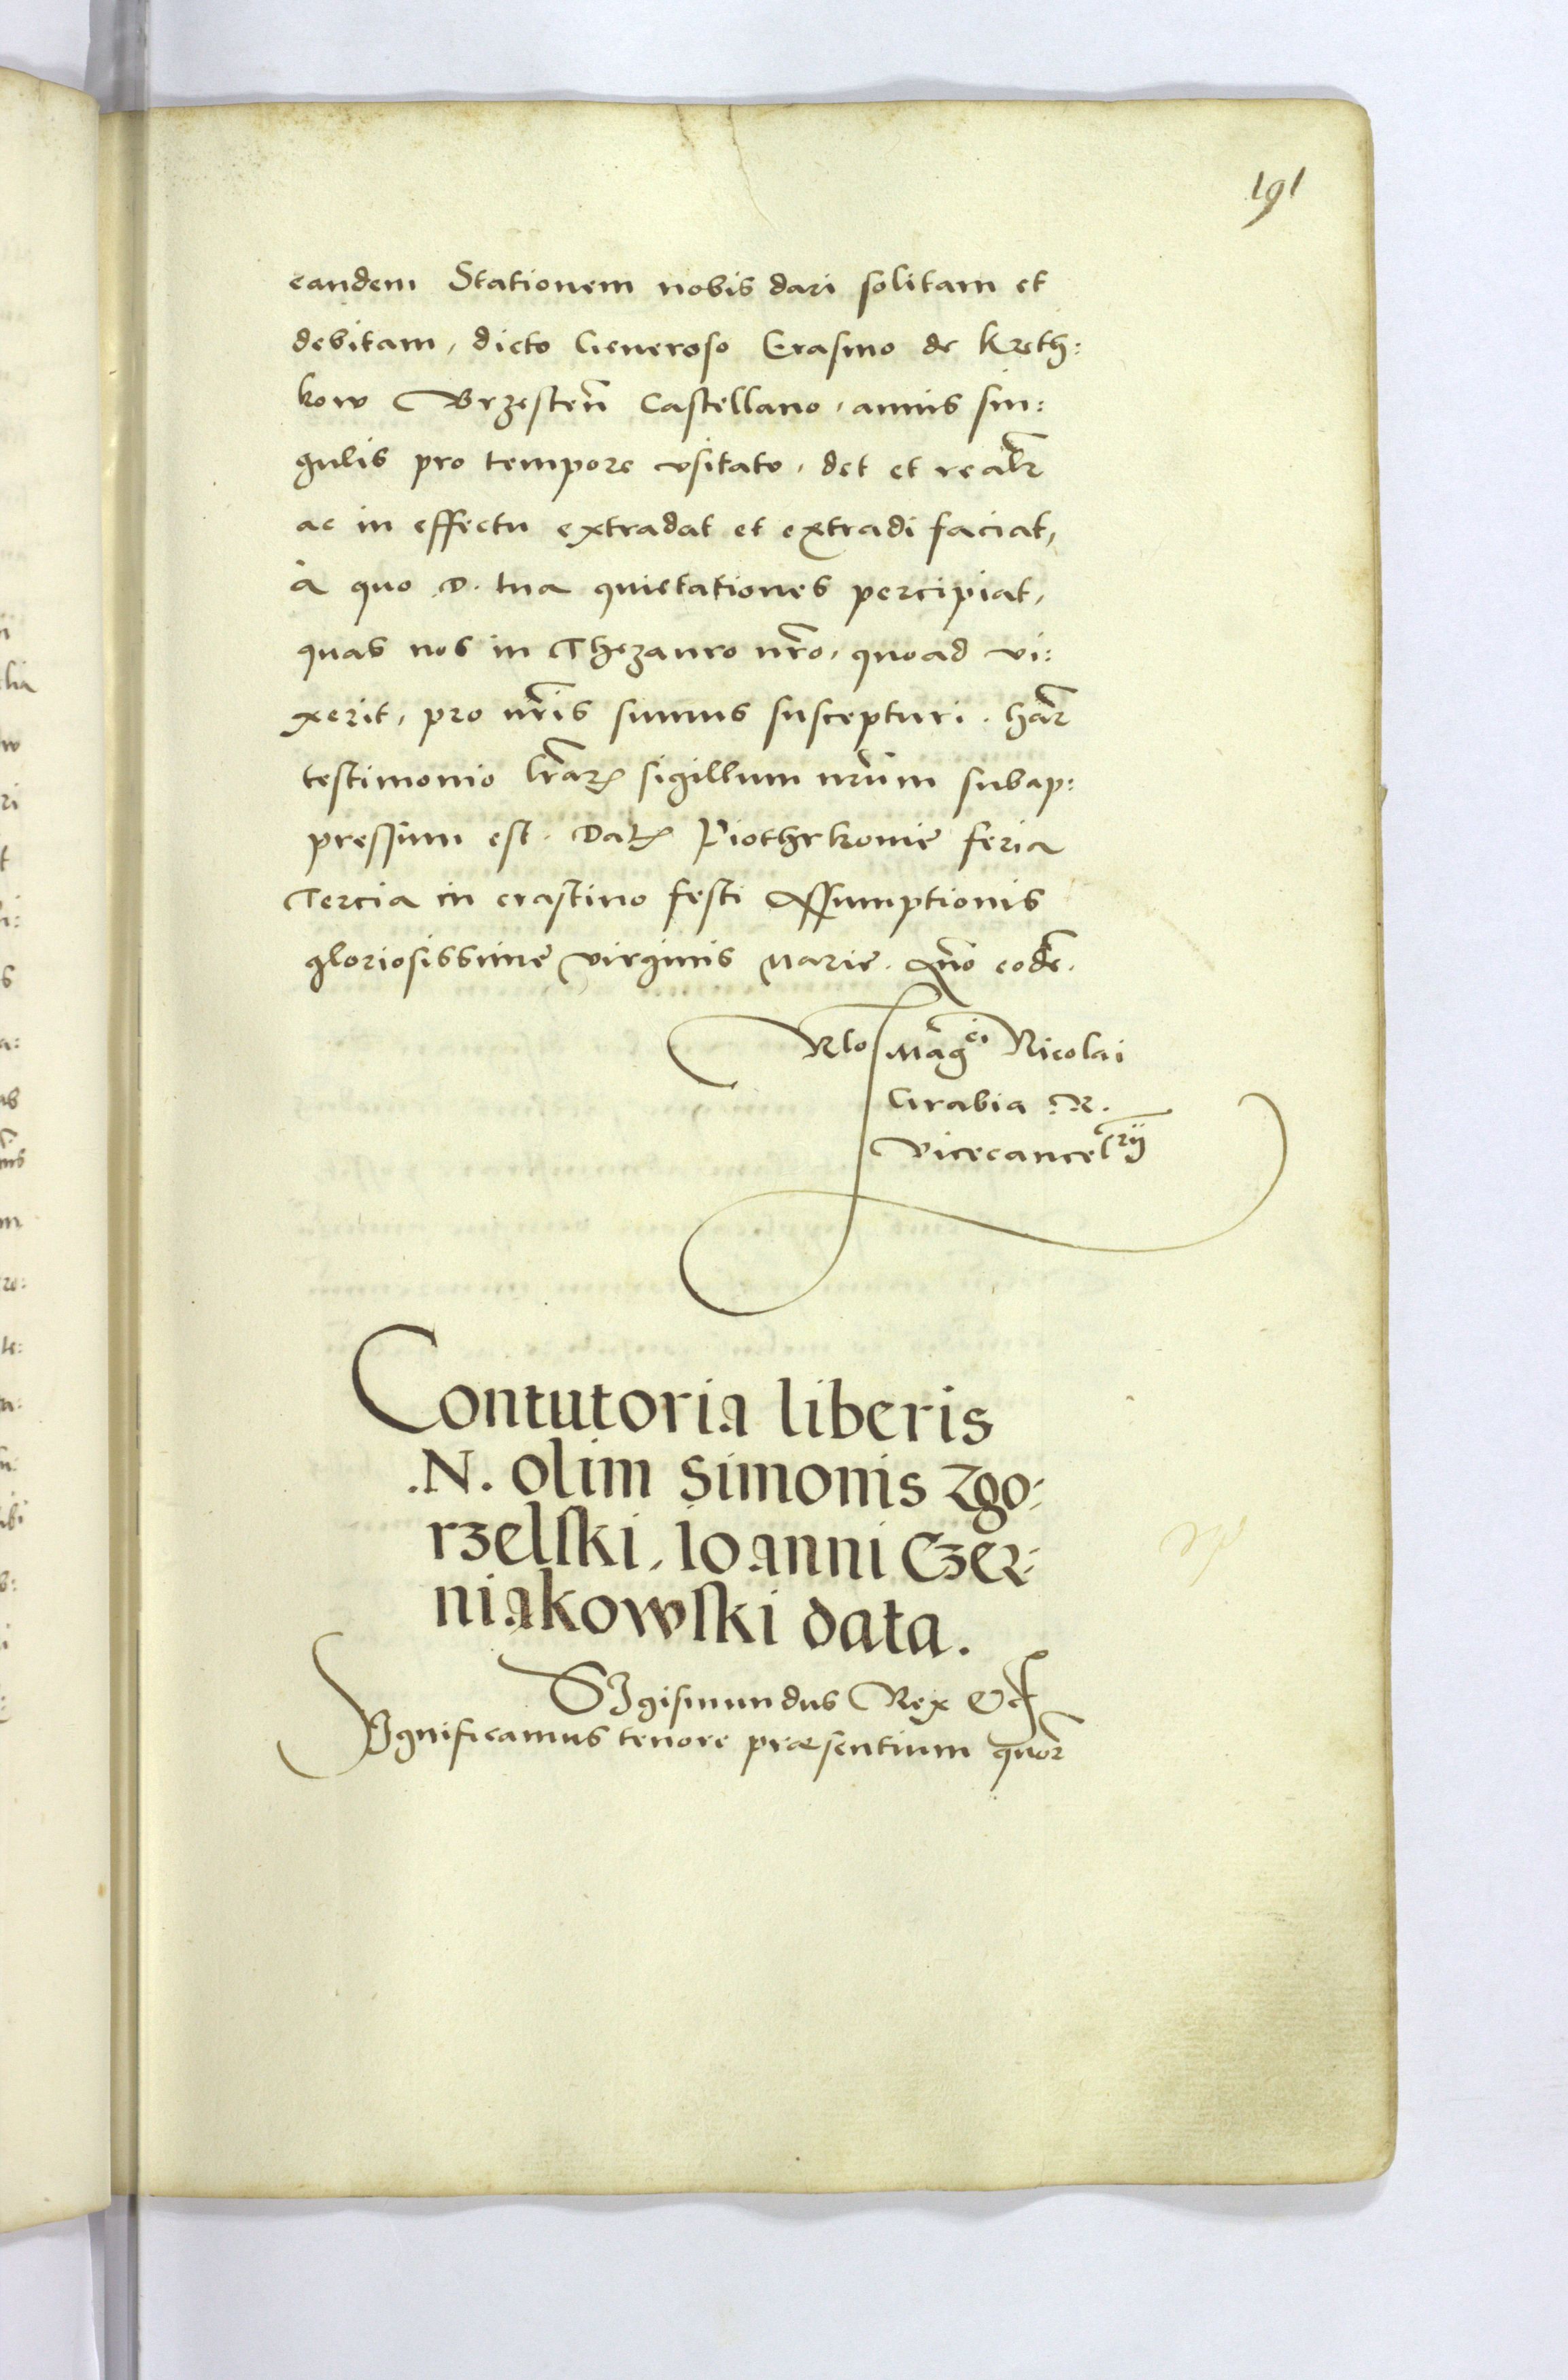 191
eandem Stationem nobis dari solitam et
debitam, dicto Generoso Erasmo de Kreth:
kow Brzesten̄ Castellano, annis sin:
gulis pro tempore vsitato, det et realr̄
ac in effectu extradat et extradi faciat,
à quo D. tua quietationes percipiat,
quas nos in Thezauro nr̄o, quoad vi:
xerit, pro nr̄is sumus suscepturi. har̄
testimonio lr̄arꝫ sigillum nr̄um subap:
pressum est. Datꝫ Piothrkovie feria
Tercia in crastino festi Assumptionis
gloriosissime virginis Marie. Año eodē.
Rlo Mag̃ci Nicolai
Grabia R.
Vicecancelrij
Contutoria liberis
.N. olim Simonis Zgo:
rzelski, Ioanni Czer:
niakowski data.
SIgismundus Rex &c
SIgnificamus tenore præsentium quor̄